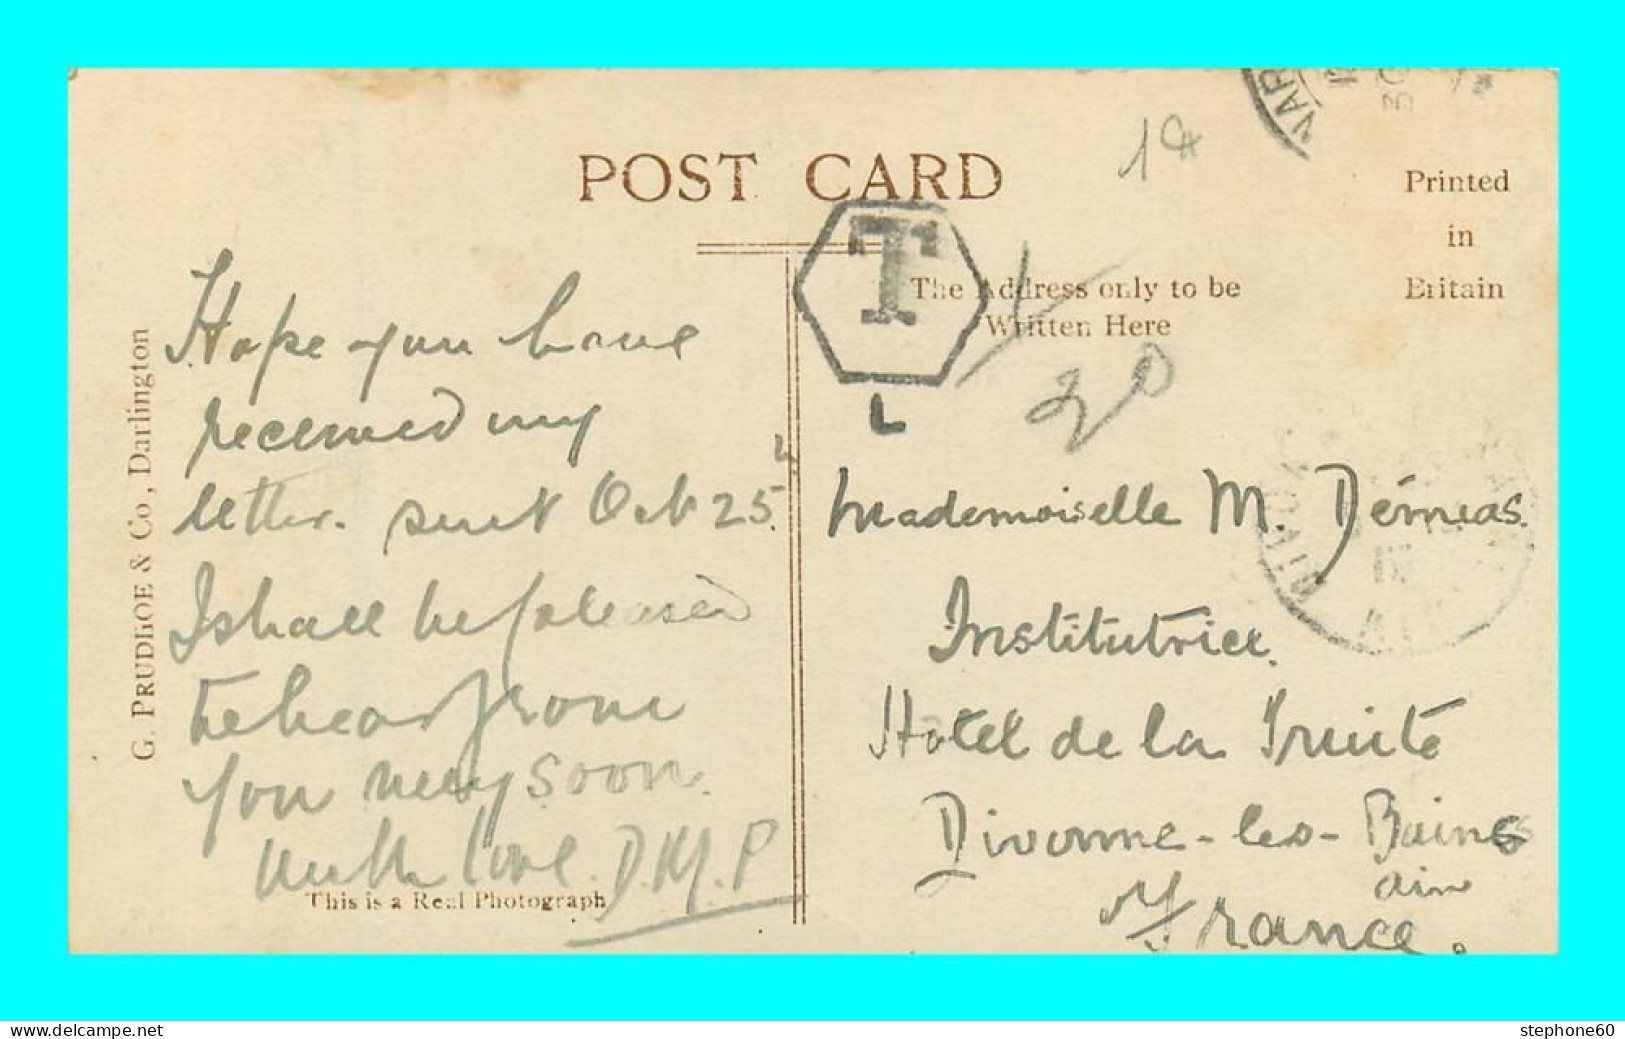 POST CARD
Printed
in
Britain
The Address only to be
Written Here
T
L
20
G. PRUDHOE & Co., Darlington
Hope you have
received my
letter. sent Oct 25.
I shall be pleased
to hear from
you very soon.
with love. D.M.P
This is a Real Photograph
Mademoiselle M. Démias.
Institutrice.
Hotel de la Truite
Divonne-les-Bains
ain
France.
www.delcampe.net
stephone60